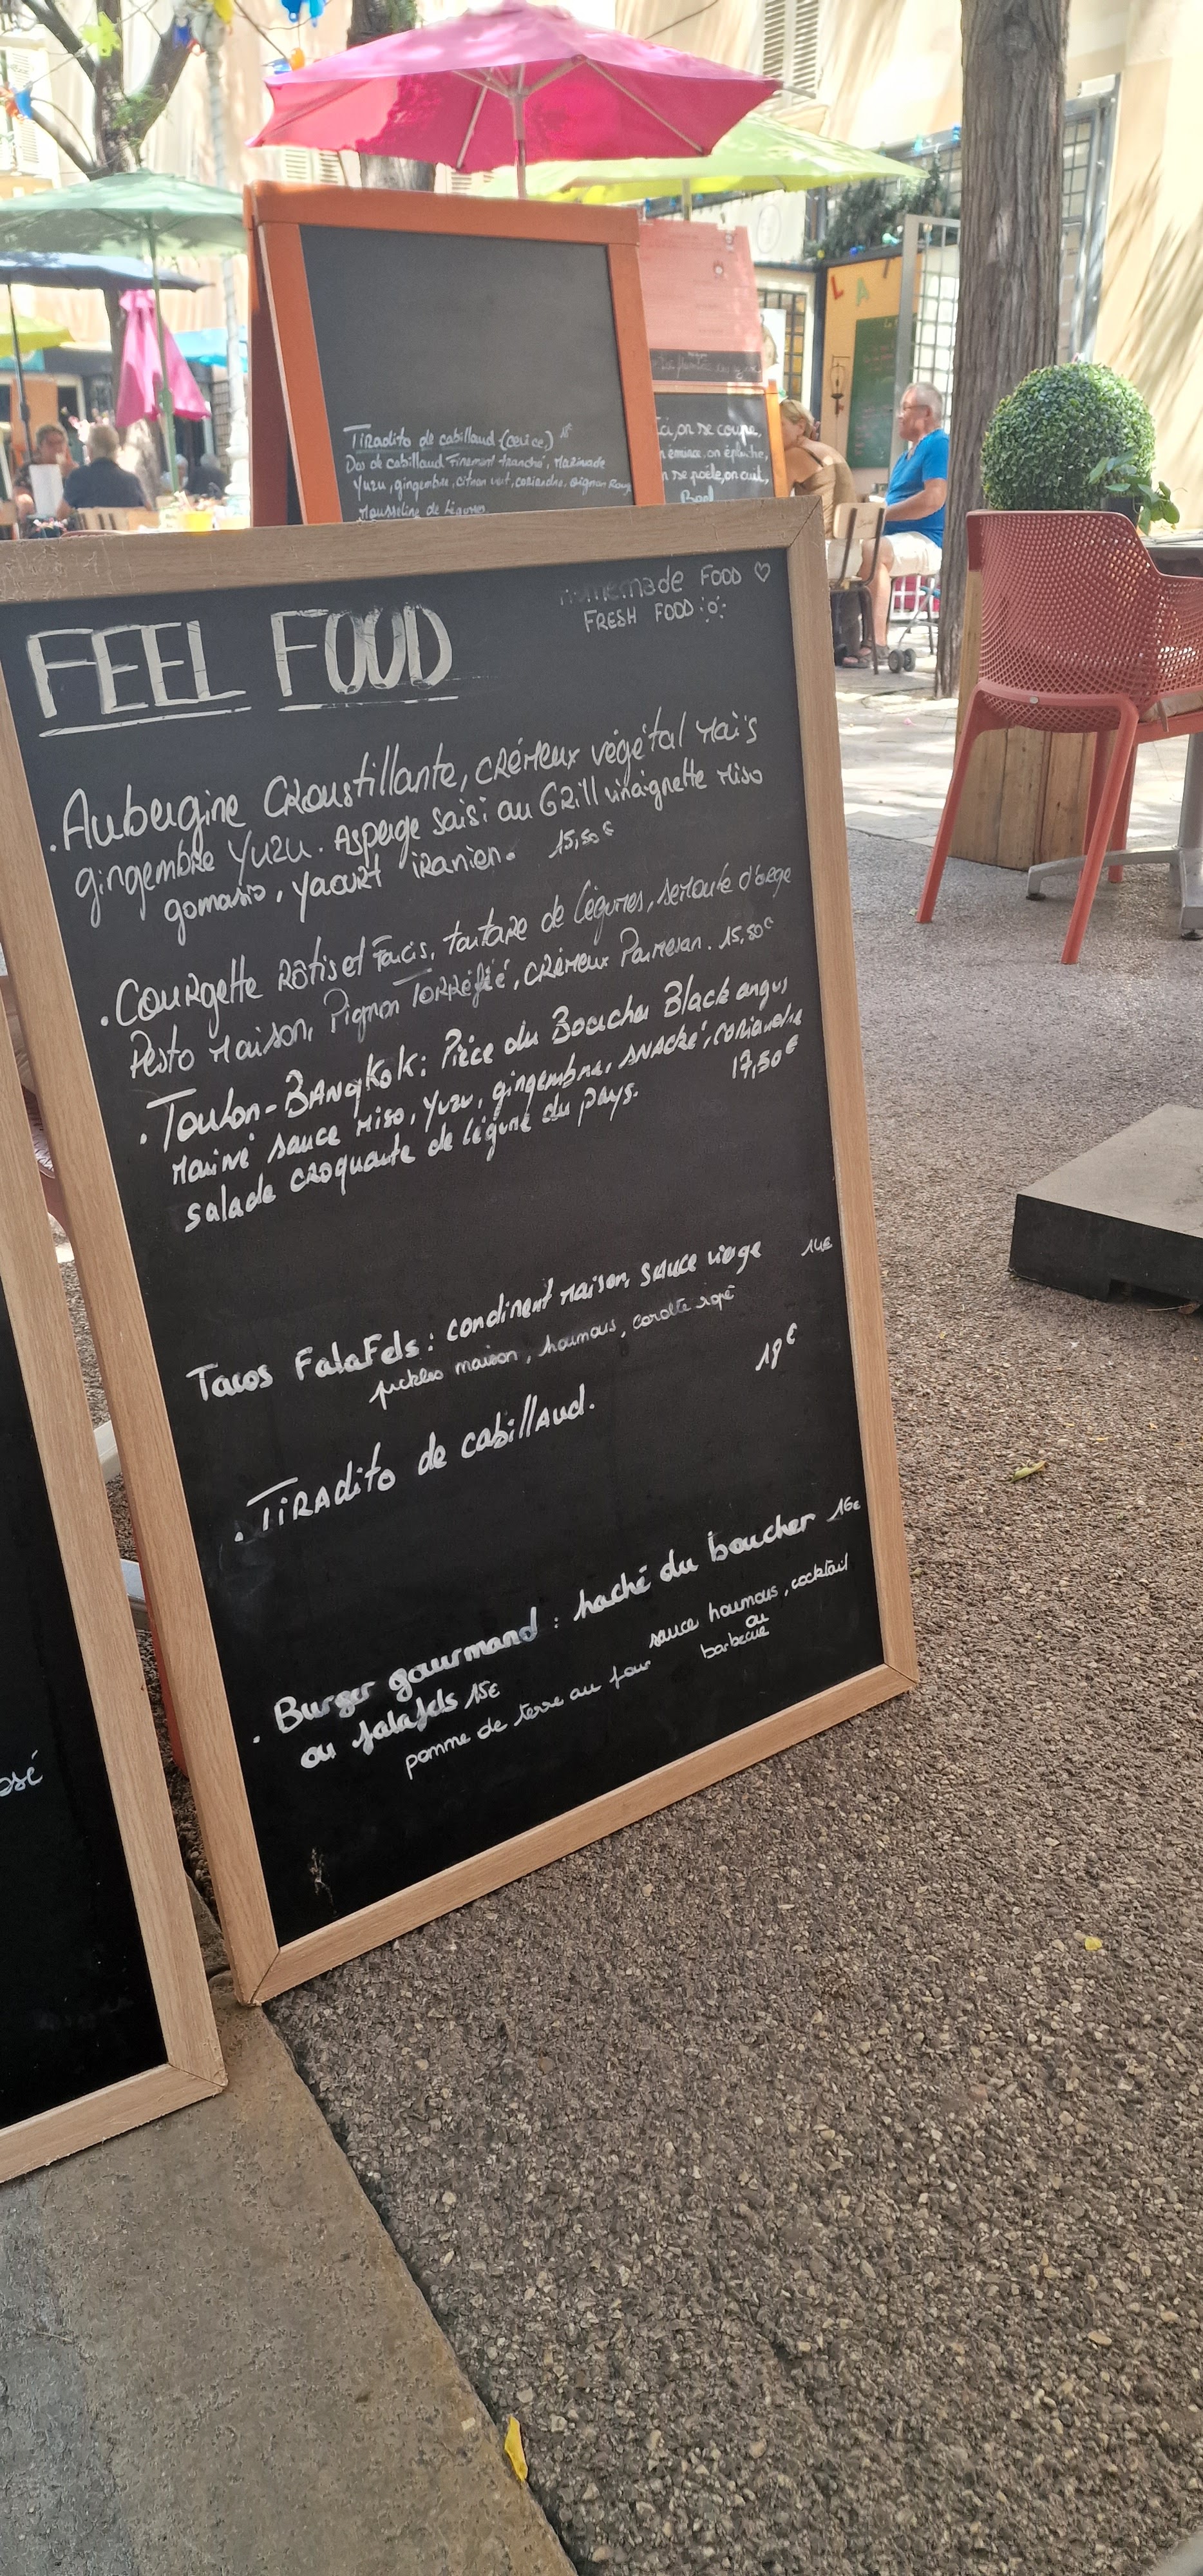 Tiradito de cabillaud (cevice) 18€
Dos de cabillaud finement tranché, marinade
Yuzu, gingembre, citron vert, coriandre, oignon Rouge
Mousseline de légumes
L A
Ici, on se coupe,
on émince, on épluche,
on se poele, on cuit,
Bref
Homemade FOOD ♡
FRESH FOOD
FEEL FOOD
. Aubergine Croustillante, crémeux végétal maïs
gingembre Yuzu. Asperge saisi au Grill vinaignette miso
gomasio, yaourt iranien. 15,50€
. Courgette Rôtis et Farcis, tartare de légumes, semoule d'orge
Pesto maison, Pignon Torréfié, crémeux Parmesan. 15,50€
. Toulon-BANgKoK: Pièce du Boucher Black angus
Mariné sauce miso, yuzu, gingembre, snacké, coriandre
salade croquante de légume du pays. 17,50€
Tacos Falafels: condiment maison, sauce vierge 14€
pickles maison, houmous, carotte rapé
18€
. TiRAdito de cabillaud.
. Burger gourmand : haché du boucher 16€
ou falafels 15€
sauce houmous, cocktail
ou
barbecue
pomme de terre au four
osé